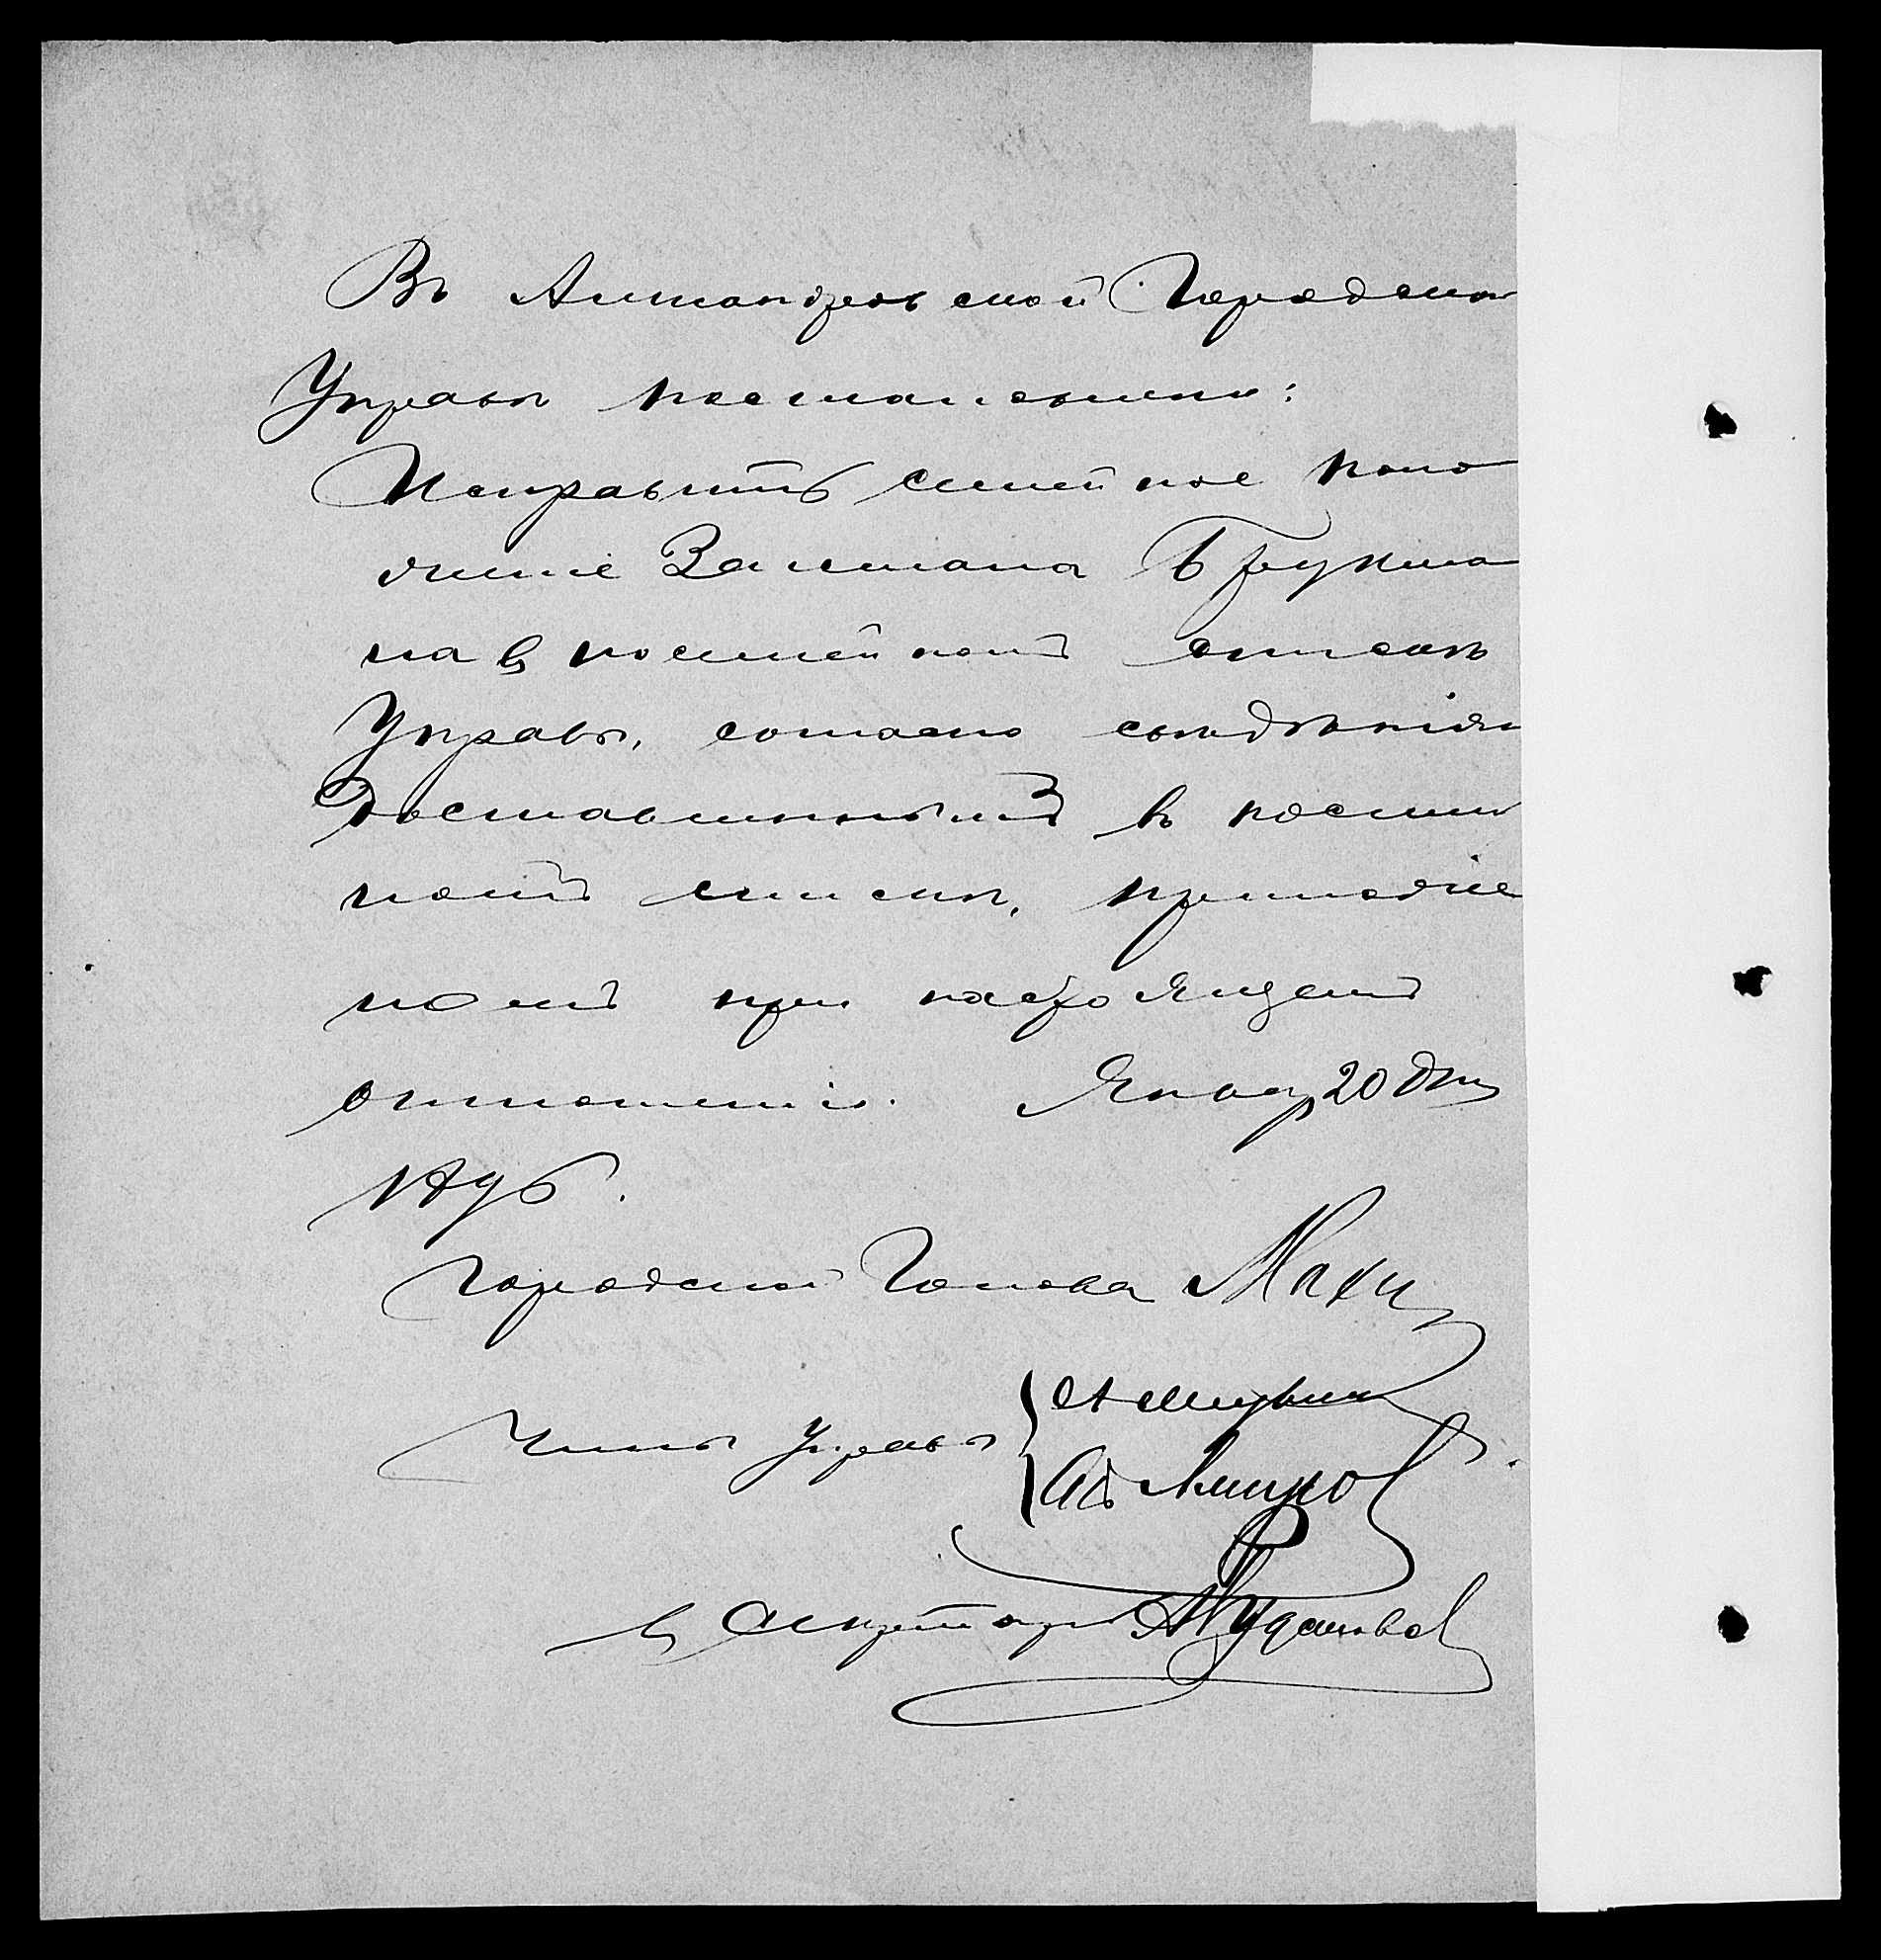 Въ Александровской Городской
Управѣ постановлено:
Исправить семейное поло
женіе Залмана Брукма
на в посемейномъ спискѣ
Управы, согласно свѣдѣніям
доставленнымъ въ посемей
номъ спискѣ, приложен
номъ при настоящемъ
отношеніи. Январ 20 дня
1896.
Городской Голова
Члены Управы
в Секретаря